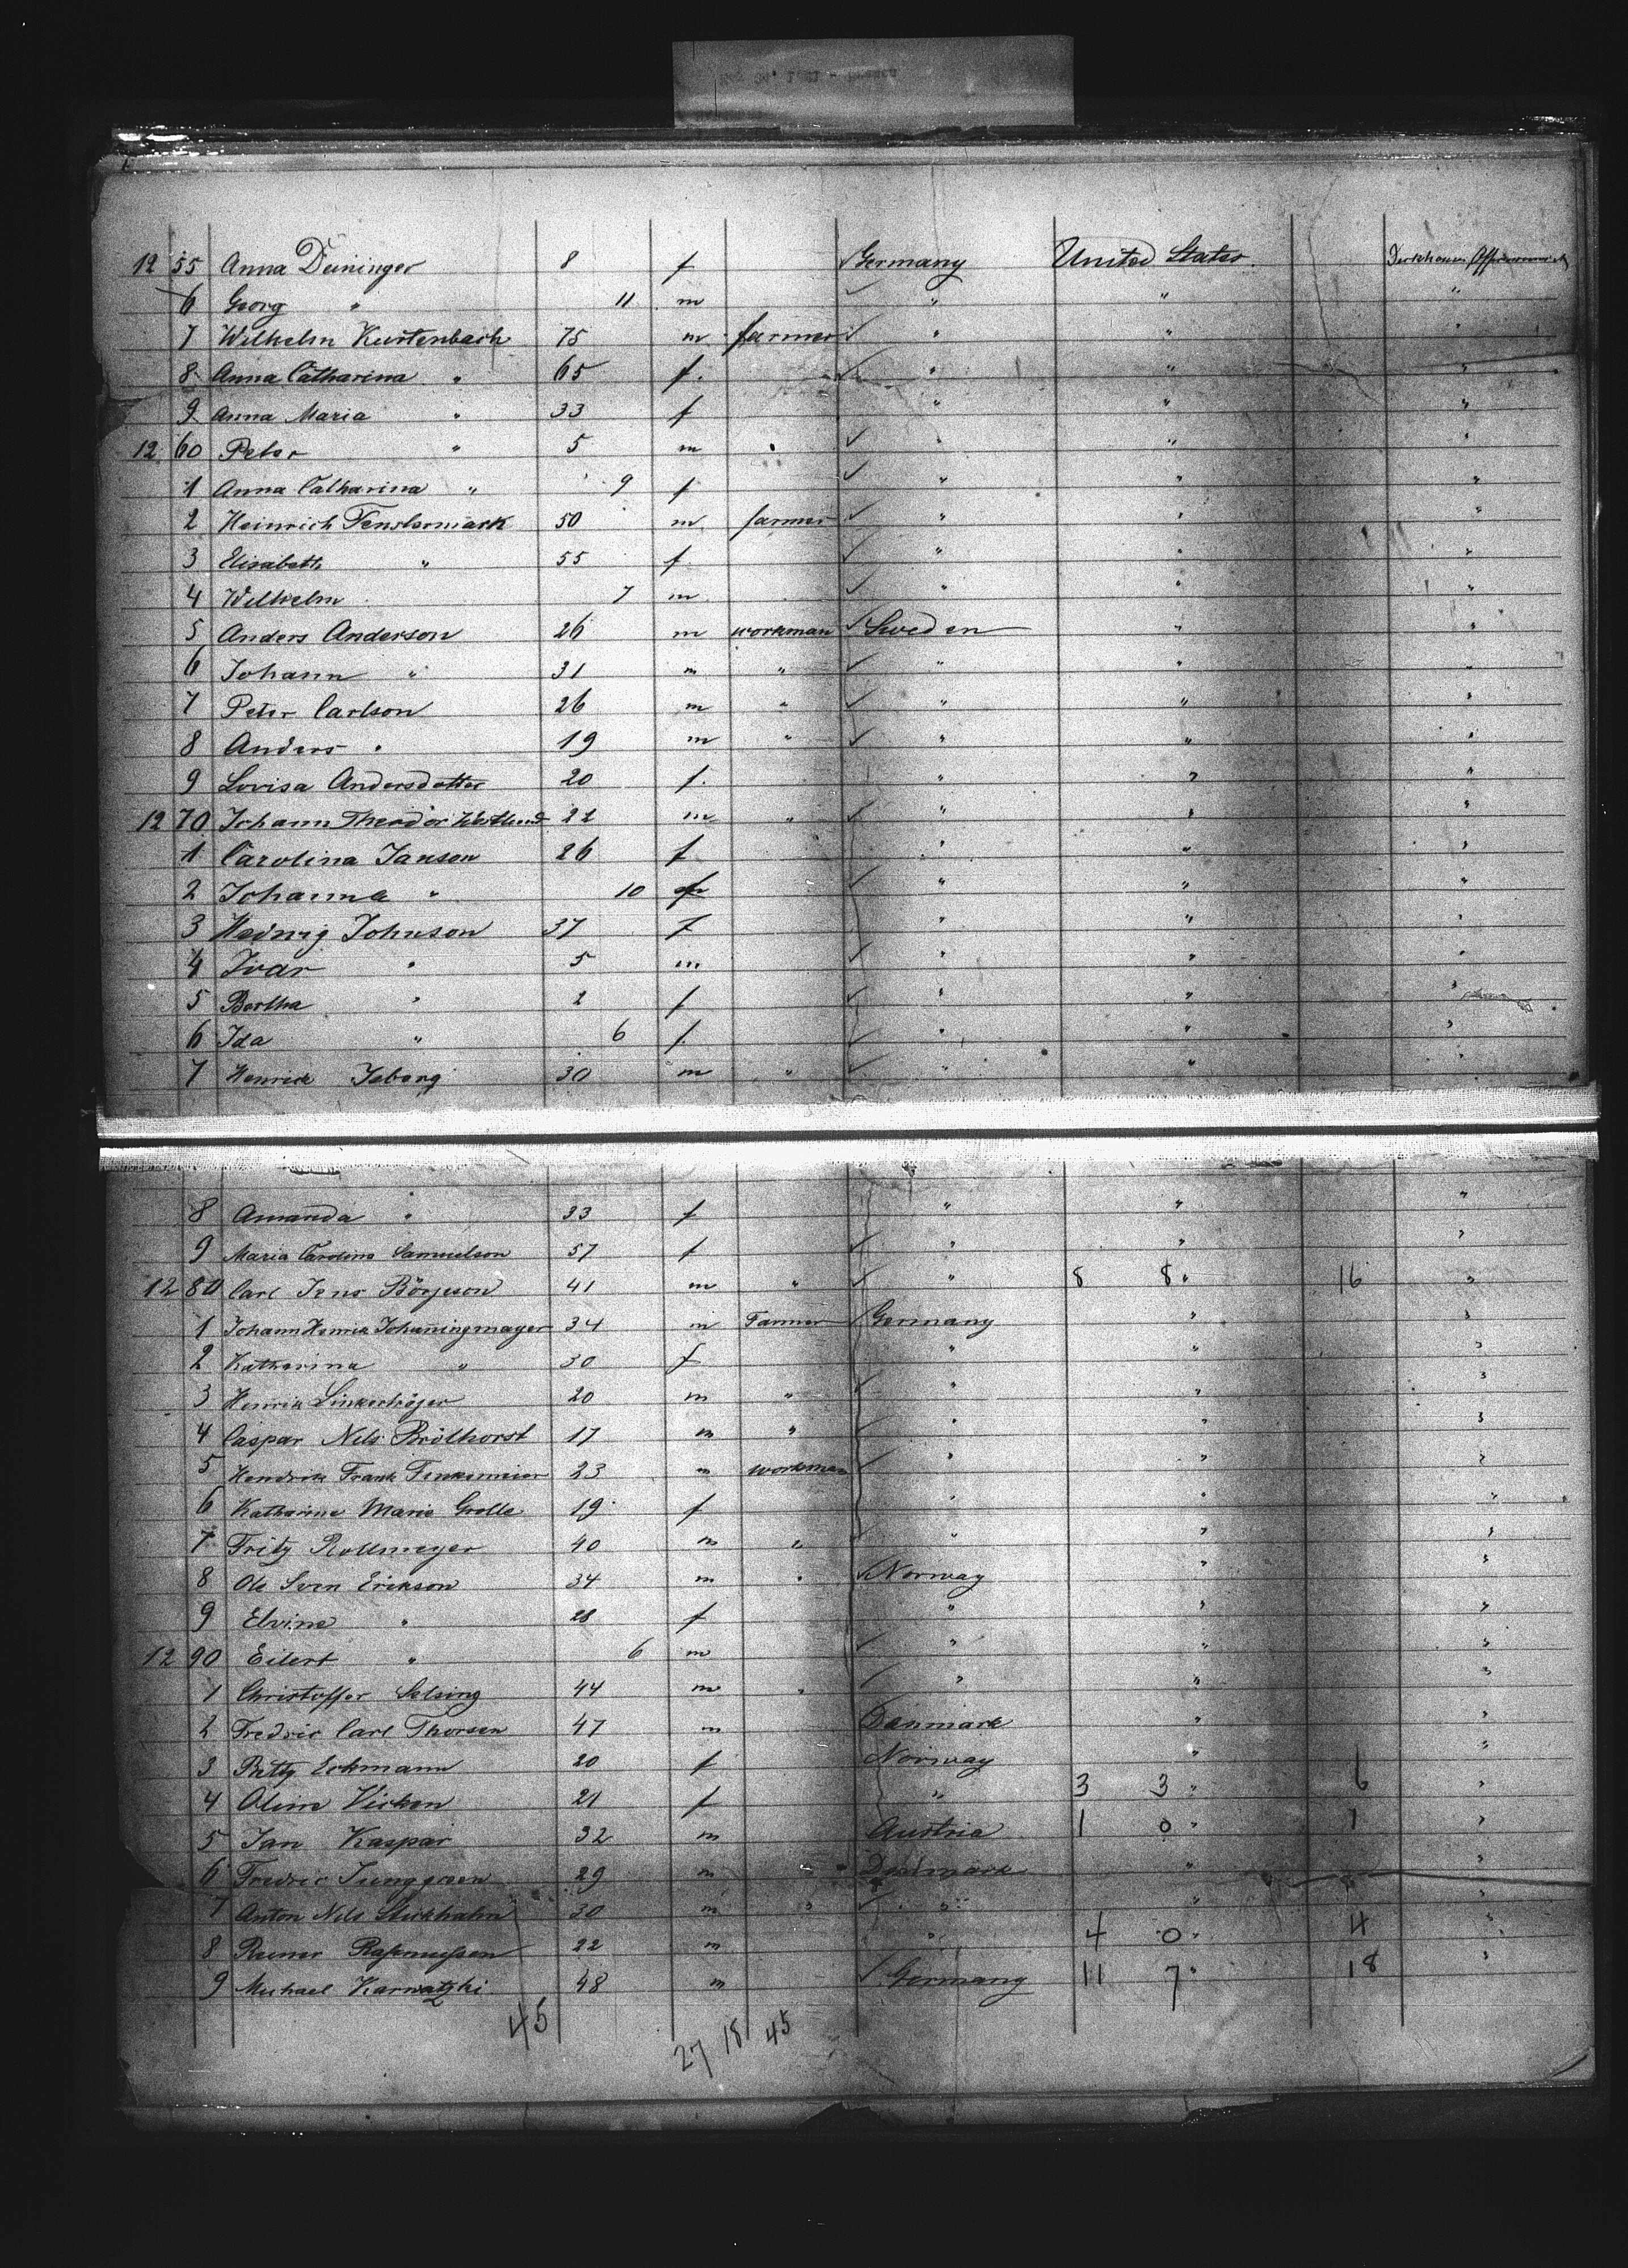 12 55 Anna Deininger 8 f Germany United States
6 Georg " 11 m " " "
7 Wilhelm Kurtenbach 75 m farmer " " "
8 Anna Catharina " 65 f. " " "
9 Anna Maria " 33 f " " "
12 60 Peter " 5 m " " "
1 Anna Catharina " 9 f " " "
2 Heinrich Fenstermark 50 m farmer " " "
3 Elisabeth " 55 f. " " "
4 Wilhelm 7 m " " "
5 Anders Anderson 26 m workman Sweden " "
6 Johann " 31 m " " " "
7 Peter Carlson 26 m " " " "
8 Anders " 19 m " " " "
9 Lovisa Andersdotter 20 f. " " "
12 70 Johann Theodor 22 m " " " "
1 Carolina Janson 26 f " " "
2 Johanna " 10 f " " "
3 Hedwig Johnson 37 f " " "
4 Ivar " 5 m " " "
5 Bertha " 2 f " " "
6 Ida " 6 f " " "
7 Henrick Ieberg 30 m " " " "
8 Amanda " 33 f " " "
9 Maria Carolina Samuelson 57 f " " "
12 80 Carl Jens Börjeson 41 m " " 8 8 " 16 "
1 Johann Henrik Johanningmayer 34 m Farmer Germany " "
2 Katharina " 30 f " " "
3 Henrik 20 m " " " "
4 Caspar Nils Brölhorst 17 m " " " "
5 Hendrik Frank 23 m workman " " "
6 Katharine Marie Grolle 19 f " " "
7 Fritz Rollmeyer 40 m " " " "
8 Ole Sven Erikson 34 m " Norway " "
9 Elvine " 28 f " " "
12 90 Eilert " 6 m " " "
1 Christoffer Selsing 44 m " " " "
2 Fredric Carl Thorsen 47 m Danmark " "
3 Betty Eckmann 20 f Norway " "
4 Oline 21 f " 3 3 " 6 "
5 Jan Kaspar 32 m Austria 1 0 " 1 "
6 Fredric Junggreen 29 m " Danmark " "
7 Anton Nils 30 m " " " "
8 Rasmussen 22 m " 4 0 " 4 "
9 Michael Karwatzki 48 m Germany 11 7 " 18 "
45 27 18 45